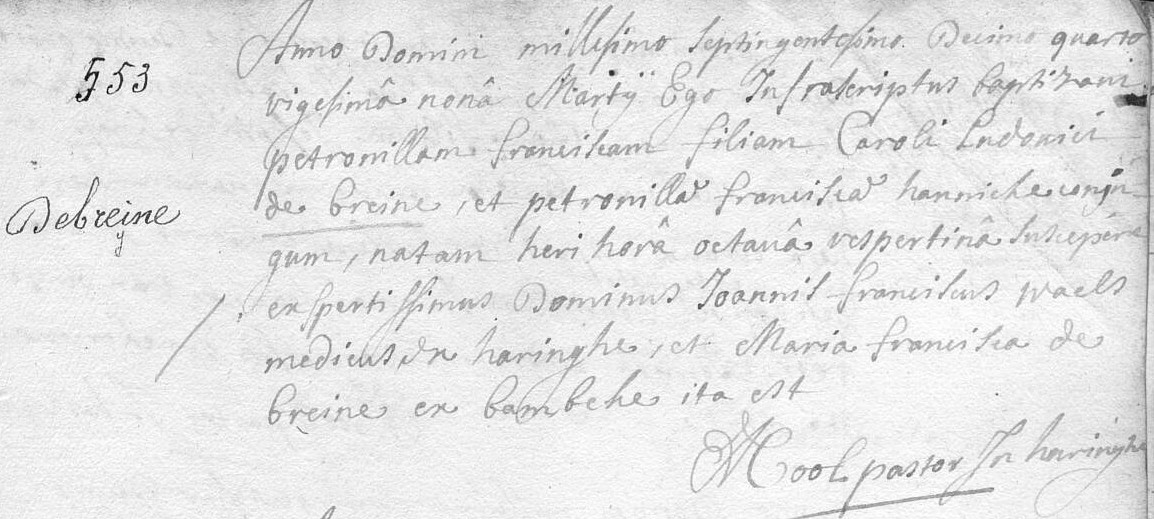 Anno Domini millesimo septingentesimo Decimo quarto
553
vigesimâ nonâ Martÿ Ego Infrascriptus baptizavi
petronillam franciscam filiam Caroli Ludovici
Debreine
de breine, et petronillæ franciscæ hanniche conju-
gum, natam heri horâ octavâ vespertinâ suscepêre
expertissimus Dominus Joannis franciscus waels
medicus ex haringhe, et Maria francisca de
breine ex bambeke ita est
Mool pastor In haringhe